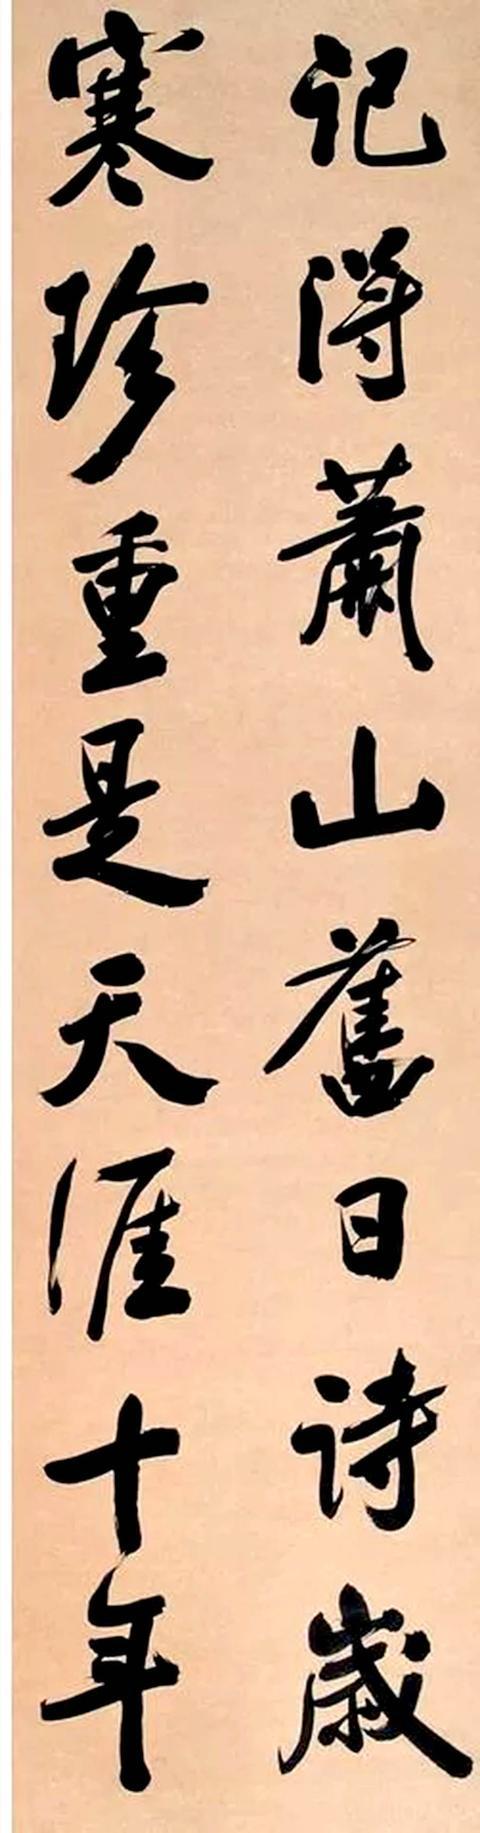 记得蕭山舊日诗歲
寒珍重是天涯十年